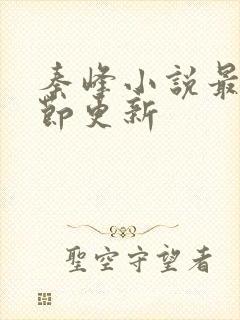 秦峰小說最
節更新
聖空守望者